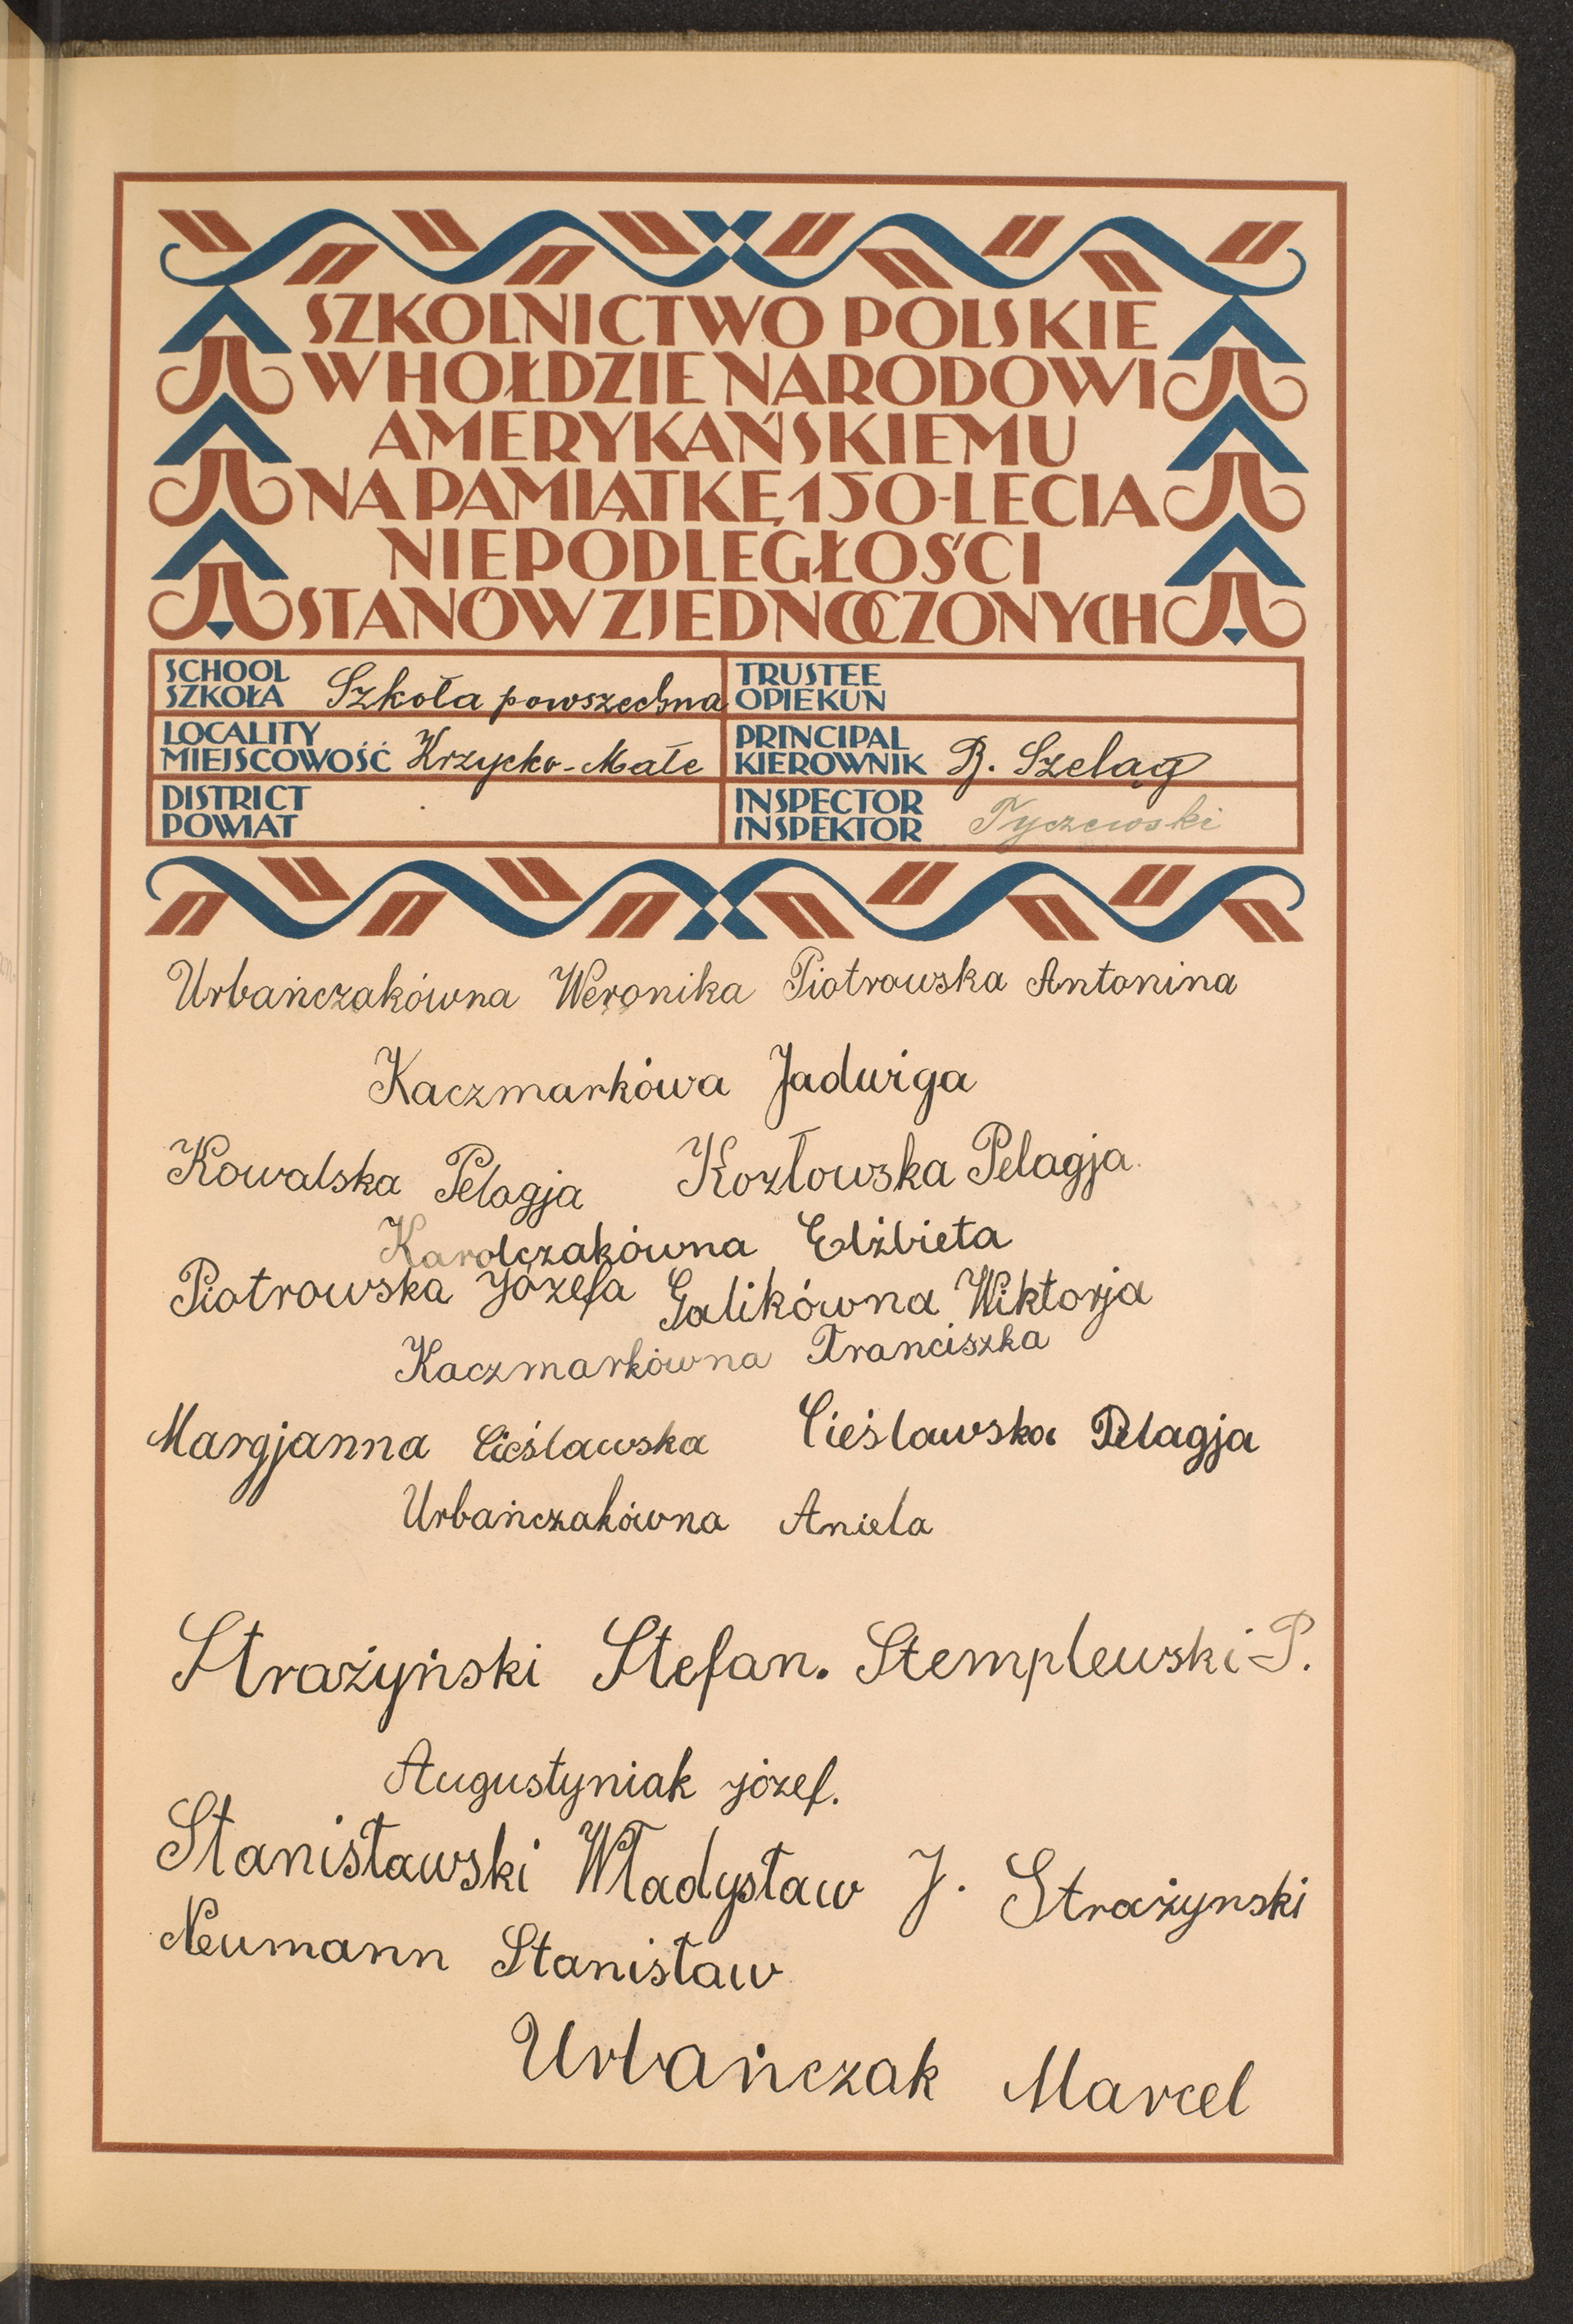 SZKOLNICTWO POLSKIE
W HOŁDZIE NARODOWI
AMERYKAŃSKIEMU
NA PAMIĄTKĘ 150-LECIA
NIEPODLEGŁOŚCI
STANÓW ZJEDNOCZONYCH
SCHOOL
SZKOŁA Szkoła powszechna
TRUSTEE
OPIEKUN
LOCALITY
MIEJSCOWOŚĆ Krzycko-Małe
PRINCIPAL
KIEROWNIK R. Szeląg
DISTRICT
POWIAT
INSPECTOR
INSPEKTOR Tyczewski
Urbańczakówna Weronika Piotrowska Antonina
Kaczmarkówa Jadwiga
Kowalska Pelagja Kozłowska Pelagja
Karolczakówna Elżbieta
Piotrowska Józefa Galikówna Wiktorja
Kaczmarkówna Franciszka
Margjanna Cieślawska Cieślawska Pelagja
Urbańczakówna Aniela
Strażyński Stefan. Stemplewski P.
Augustyniak Józef.
Stanisławski Władysław J. Strażynski
Neumann Stanisław
Urbańczak Marcel